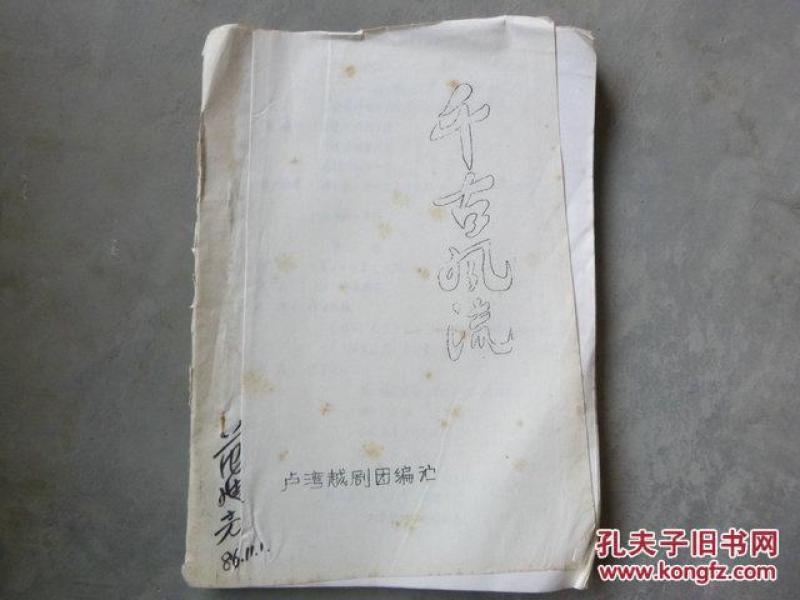 千古风流
卢湾越剧团编记
86.11.1.
孔夫子旧书网
www.kongfz.com